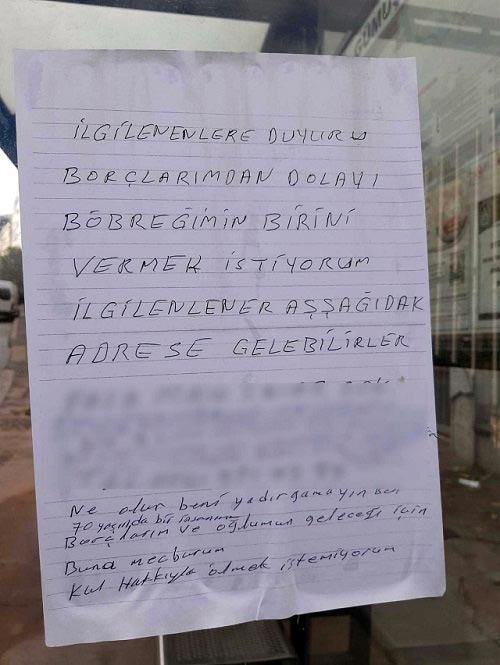 GÜMÜŞ
İLGİLENENLERE DUYURU
BORÇLARIMDAN DOLAYI
BÖBREĞİMİN BİRİNİ
VERMEK İSTİYORUM
İLGİLENLENER AŞŞAĞIDAK
ADRESE GELEBİLİRLER
Ne olur beni yadırgamayın ben
70 yaşında bir insanım
Borçlarım ve oğlumun geleceği için
Buna mecburum
Kul Hakkıyla ölmek istemiyorum